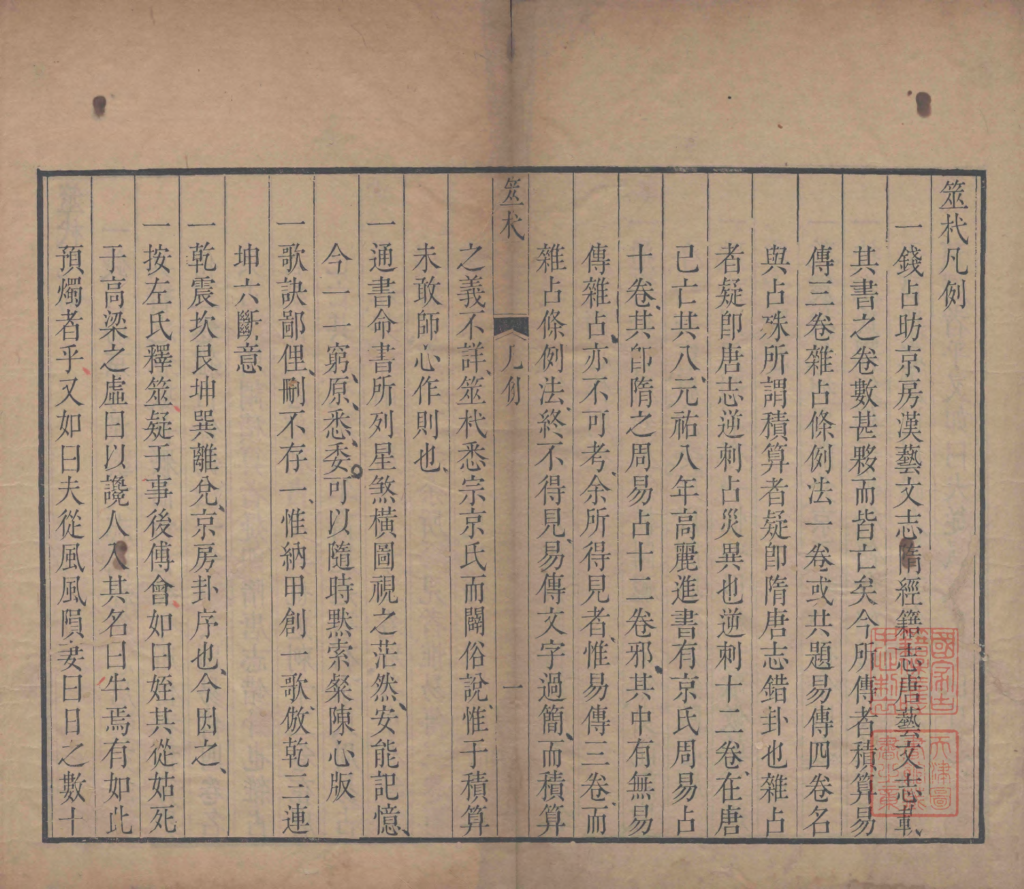 筮杙凡例
一錢占昉京房漢藝文志隋經籍志唐藝文志載
其書之卷數甚夥而皆亡矣今所傳者積算易
傳三卷雜占條例法一卷或共題易傳四卷名
與占殊所謂積算者疑卽隋唐志錯卦也雜占
者疑卽唐志逆刺占災異也逆刺十二卷、在唐
已亡其八、元祐八年高麗進書有京氏周易占
十卷、其卽隋之周易占十二卷邪、其中有無易
傳雜占、亦不可考、余所得見者、惟易傳三卷、而
雜占條例法、終不得見、易傳文字過簡、而積算
筮杙
凡例
一
之義不詳、筮杙悉宗京氏而闢俗說、惟于積算
未敢師心作則也、
一通書命書所列星煞橫圖視之茫然、安能記憶、
今一一窮、原、悉、委。可以隨時默索粲陳心版
一歌訣鄙俚、刪不存一、惟納甲創一歌、倣乾三連
坤六斷意
一乾震坎艮坤巽離兌、京房卦序也、今因之、
一按左氏釋筮疑于事後傅會如曰姪其從姑死
于高梁之虛曰以讒人入其名曰牛焉有如此
預燭者乎又如曰夫從風風隕妻曰日之數十